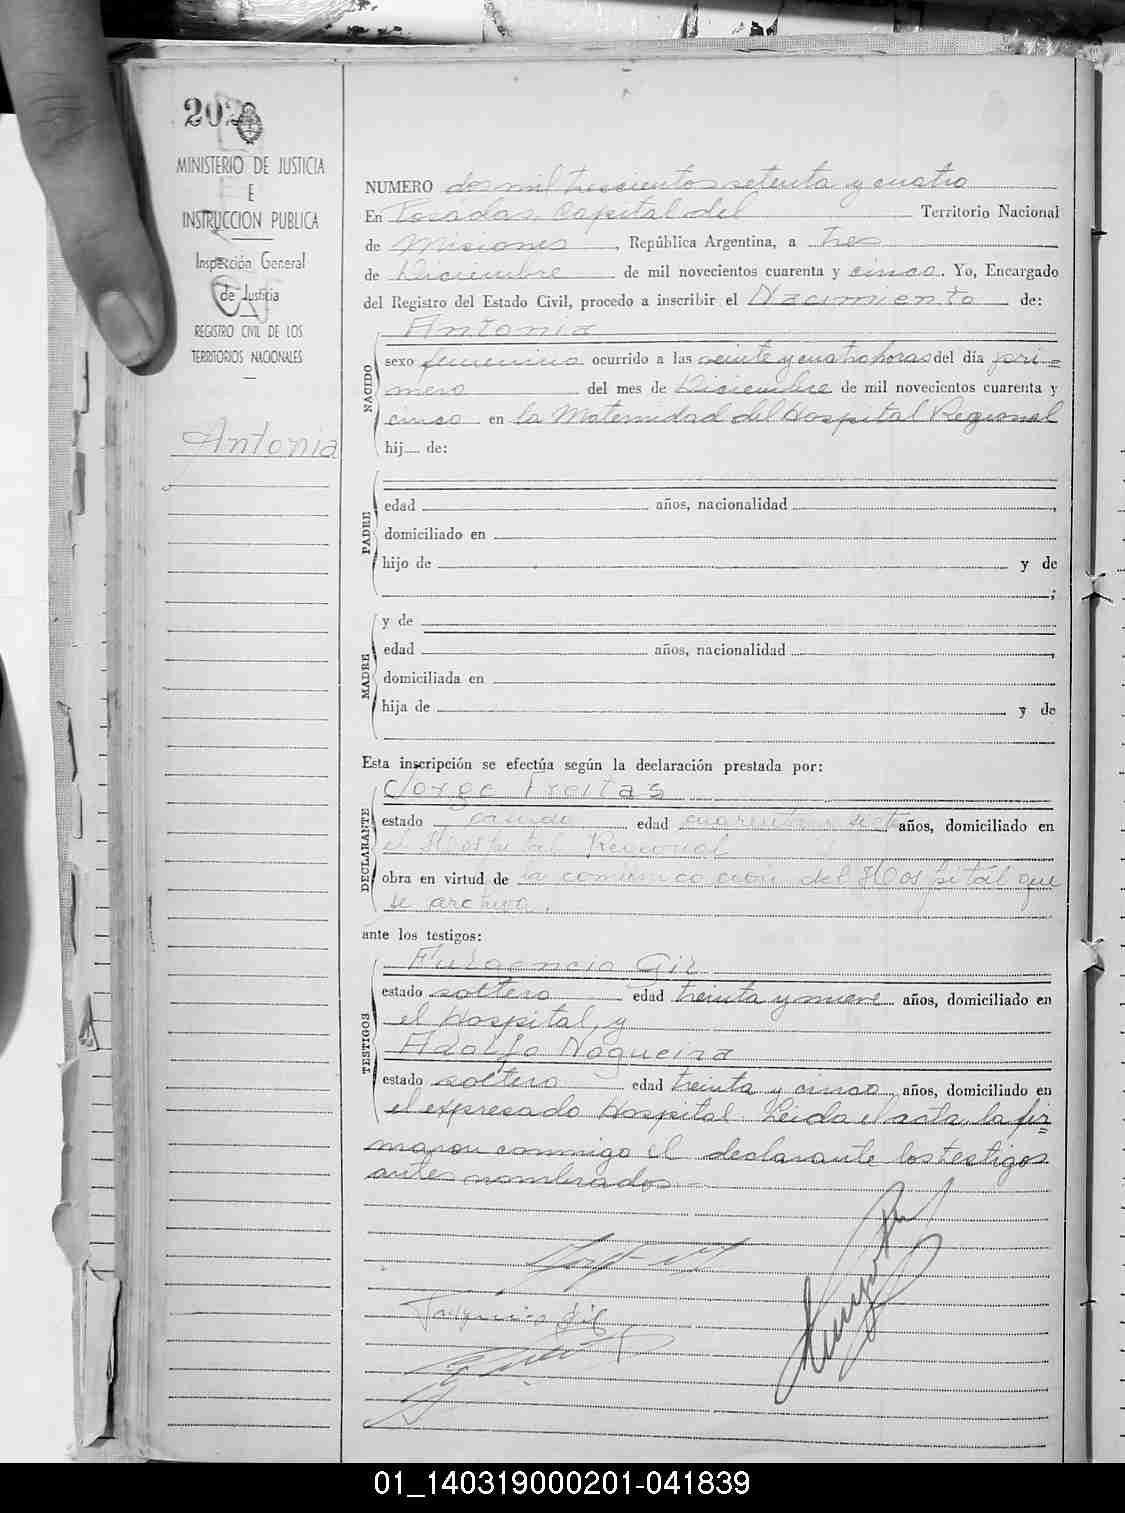 202
MINISTERIO DE JUSTICIA
E
INSTRUCCION PUBLICA
Inspección General
de Justicia
REGISTRO CIVIL DE LOS
TERRITORIOS NACIONALES
Antonia
NUMERO dos mil trescientos setenta y cuatro
En Posadas, Capital del Territorio Nacional
de Misiones, República Argentina, a tres
de Diciembre de mil novecientos cuarenta y cinco. Yo, Encargado
del Registro del Estado Civil, procedo a inscribir el Nacimiento de:
NACIDO
Antonia
sexo femenino ocurrido a las veinte y cuatro horas del día pri=
mero del mes de Diciembre de mil novecientos cuarenta y
cinco en la Maternidad del Hospital Regional
hij de:
PADRE
edad años, nacionalidad ,
domiciliado en
hijo de y de
;
MADRE
y de
edad años, nacionalidad ,
domiciliada en
hija de y de
Esta inscripción se efectúa según la declaración prestada por:
DECLARANTE
Jorge Freitas
estado casado edad cuarenta y siete años, domiciliado en
el Hospital Regional
obra en virtud de la comunicación del Hospital que
se archiva.
ante los testigos:
TESTIGOS
Fulgencio Gil
estado soltero edad treinta y nueve años, domiciliado en
el Hospital, y
Adolfo Nogueira
estado soltero edad treinta y cinco años, domiciliado en
el expresado Hospital. Leida el acta, la fir=
maron conmigo el declarante los testigos
antes nombrados.
01_140319000201-041839